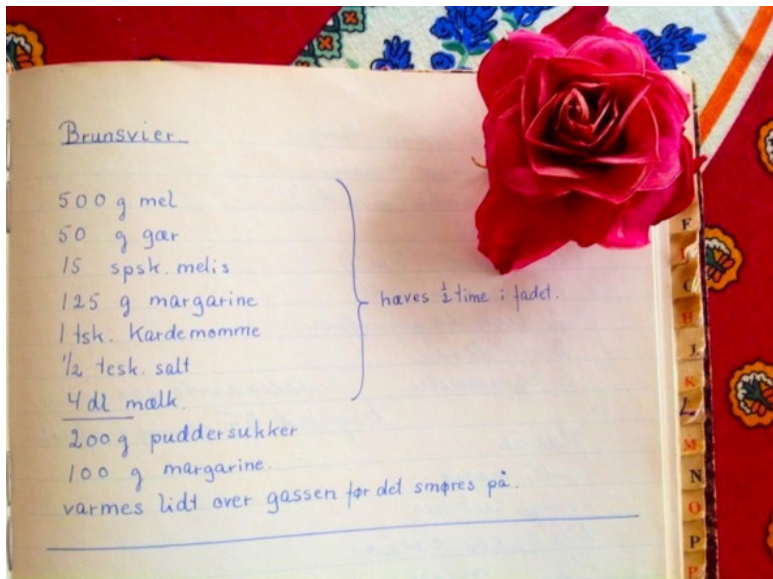 Brunsvier
500 g mel
50 g gær
15 spsk. melis
125 g margarine
1 tsk. Kardemomme
1/2 tesk. salt
4 dl mælk.
hæves ½ time i fadet.
200 g puddersukker
100 g margarine.
varmes lidt over gassen før det smøres på.
F
G
H
J
K
L
M
N
O
P